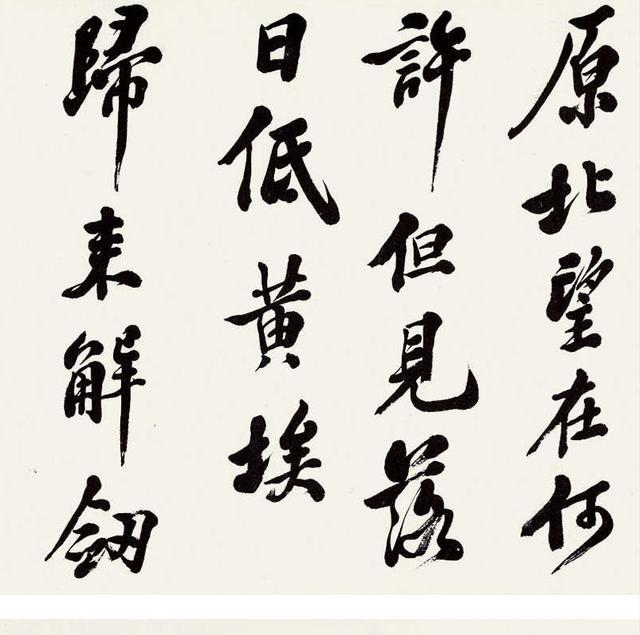 原北望在何
許但見落
日低黃埃
歸來解劔